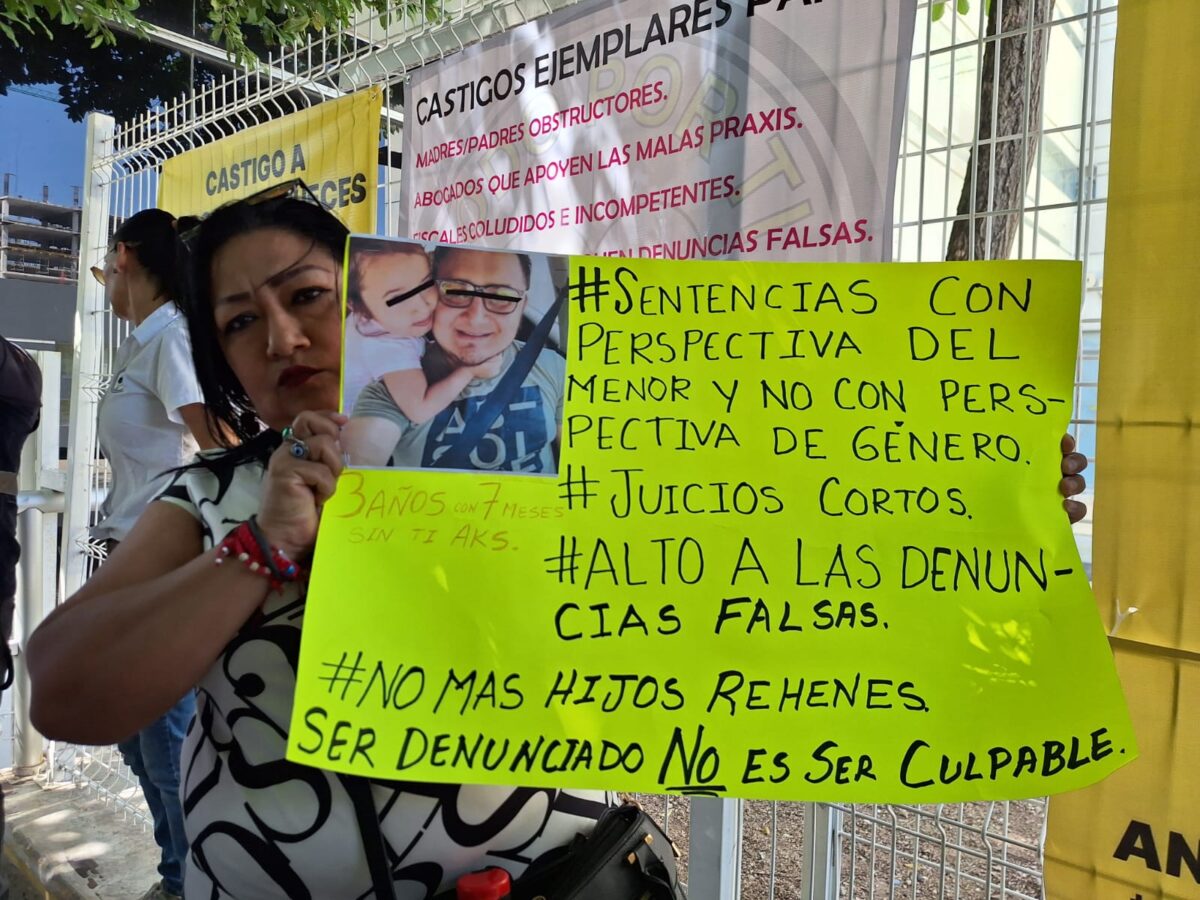 CASTIGOS EJEMPLARES
MADRES/PADRES OBSTRUCTORES.
ABOGADOS QUE APOYEN LAS MALAS PRAXIS.
FISCALES COLUDIDOS E INCOMPETENTES.
DENUNCIAS FALSAS.
CASTIGO A
#SENTENCIAS CON
PERSPECTIVA DEL
MENOR Y NO CON PERS-
PECTIVA DE GÉNERO.
#JUICIOS CORTOS.
#ALTO A LAS DENUN-
CIAS FALSAS.
#NO MAS HIJOS REHENES.
SER DENUNCIADO NO ES SER CULPABLE.
3 AÑOS CON 7 MESES
SIN TI AKS.
AN